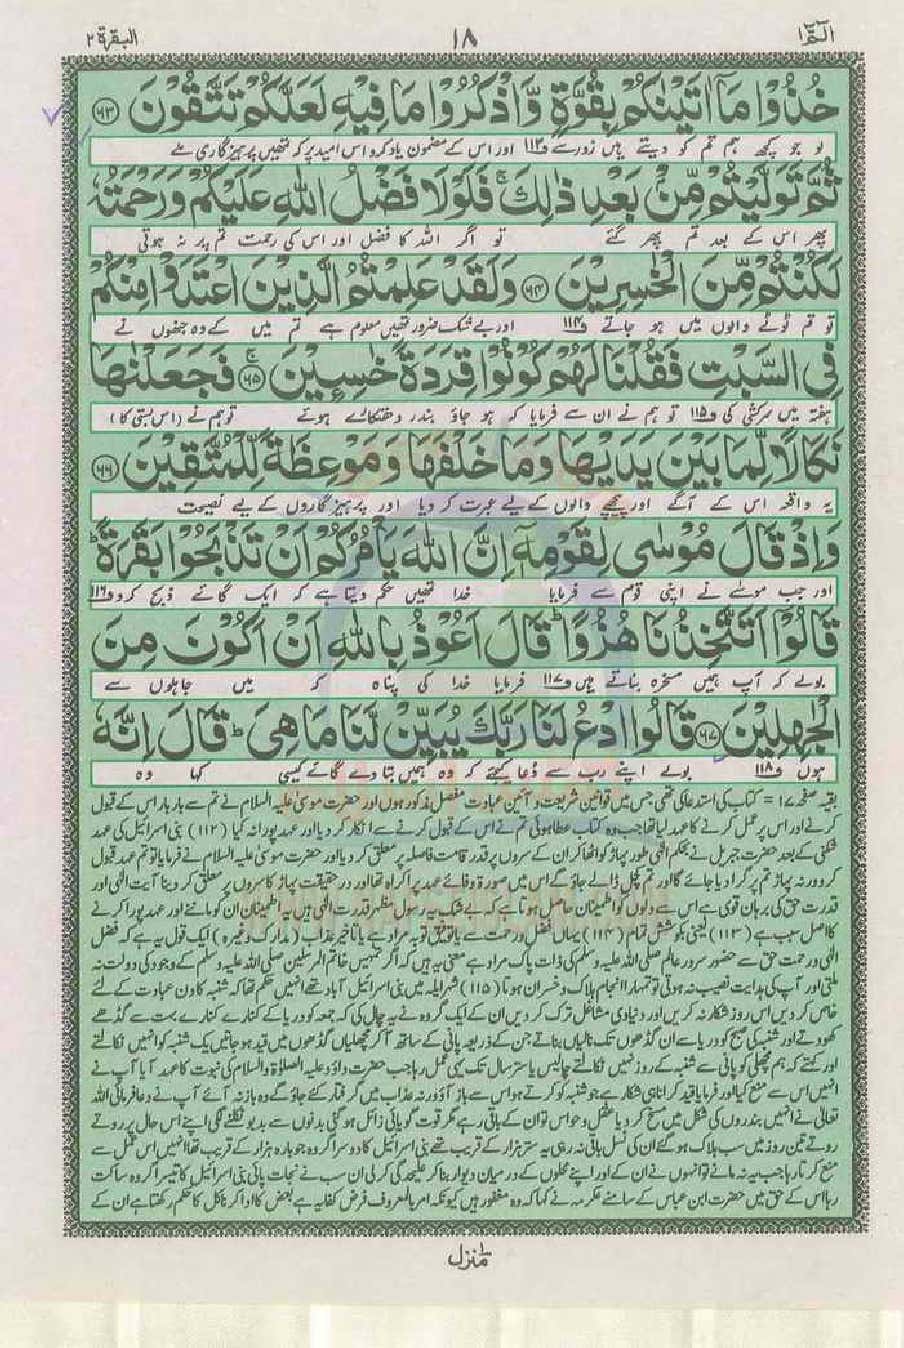 الٓمّٓ ١
١٨
البقرة ٢
خُذُوْا مَاۤ اٰتَیْنٰكُمْ بِقُوَّةٍ وَّ اذْكُرُوْا مَا فِیْهِ لَعَلَّكُمْ تَتَّقُوْنَ ﴿۶۳﴾
لو جو کچھ ہم تم کو دیتے ہیں زور سے ف۱۱۳ اور اس کے مضمون یاد کرو اس امید پر کہ تمھیں پرہیزگاری ملے
ثُمَّ تَوَلَّیْتُمْ مِّنْۢ بَعْدِ ذٰلِكَ ۚ فَلَوْ لَا فَضْلُ اللّٰهِ عَلَیْكُمْ وَ رَحْمَتُهٗ
پھر اس کے بعد تم پھر گئے تو اگر اللہ کا فضل اور اس کی رحمت تم پر نہ ہوتی
لَكُنْتُمْ مِّنَ الْخٰسِرِیْنَ ﴿۶۴﴾ وَ لَقَدْ عَلِمْتُمُ الَّذِیْنَ اعْتَدَوْا مِنْكُمْ
تو تم ٹوٹے والوں میں ہو جاتے ف۱۱۴ اور بے شک ضرور تمھیں معلوم ہے تم میں کے وہ جنھوں نے
فِی السَّبْتِ فَقُلْنَا لَهُمْ كُوْنُوْا قِرَدَةً خٰسِـٕیْنَ ﴿۶۵﴾ ۚ فَجَعَلْنٰهَا
ہفتہ میں سرکشی کی ف۱۱۵ تو ہم نے ان سے فرمایا کہ ہو جاؤ بندر دھتکارے ہوئے تو ہم نے (اس بستی کا)
نَكَالًا لِّمَا بَیْنَ یَدَیْهَا وَ مَا خَلْفَهَا وَ مَوْعِظَةً لِّلْمُتَّقِیْنَ ﴿۶۶﴾
یہ واقعہ اس کے آگے اور پیچھے والوں کے لیے عبرت کر دیا اور پرہیزگاروں کے لیے نصیحت
وَ اِذْ قَالَ مُوْسٰی لِقَوْمِهٖۤ اِنَّ اللّٰهَ یَاْمُرُكُمْ اَنْ تَذْبَحُوْا بَقَرَةً ؕ
اور جب موسٰے نے اپنی قوم سے فرمایا خدا تمھیں حکم دیتا ہے کہ ایک گائے ذبح کرو ف۱۱۶
قَالُوْۤا اَتَتَّخِذُنَا هُزُوًا ؕ قَالَ اَعُوْذُ بِاللّٰهِ اَنْ اَكُوْنَ مِنَ
بولے کہ آپ ہمیں مسخرہ بناتے ہیں ف۱۱۷ فرمایا خدا کی پناہ کہ میں جاہلوں سے
الْجٰهِلِیْنَ ﴿۶۷﴾ قَالُوا ادْعُ لَنَا رَبَّكَ یُبَیِّنْ لَّنَا مَا هِیَ ؕ قَالَ اِنَّهٗ
ہوں ف۱۱۸ بولے اپنے رب سے دُعا کیجئے کہ وہ ہمیں بتا دے گائے کیسی کہا وہ
بقیہ صفحہ ۱۷ = کتاب کی استدعا کی تھی جس میں قوانین شریعت و آئین عبادت مفصل مذکور ہوں اور حضرت موسیٰ علیہ السلام نے تم سے بار بار اس کے قبول
کرنے اور اس پر عمل کرنے کا عہد لیا تھا جب وہ کتاب عطا ہوئی تم نے اس کے قبول کرنے سے انکار کر دیا اور عہد پورا نہ کیا (۱۱۲) بنی اسرائیل کی عہد
شکنی کے بعد حضرت جبریل نے بحکم الٰہی طور پہاڑ کو اٹھا کر ان کے سروں پر قدر قامت فاصلہ پر معلق کر دیا اور حضرت موسیٰ علیہ السلام نے فرمایا تو تم عہد قبول
کرو ورنہ پہاڑ تم پر گرا دیا جائے گا اور تم کچل ڈالے جاؤ گے اس میں صورۃً وفائے عہد پر اکراہ تھا اور در حقیقت پہاڑ کا سروں پر معلق کر دینا آیت الٰہی اور
قدرت حق کی برہان قوی ہے اس سے دلوں کو اطمینان حاصل ہوتا ہے کہ بے شک یہ رسول مظہر قدرت الٰہی ہیں یہ اطمینان ان کو ماننے اور عہد پورا کرنے
کا اصل سبب ہے (۱۱۳) یعنی بکوشش تمام (۱۱۴) یہاں فضل و رحمت سے یا توفیق توبہ مراد ہے یا تاخیر عذاب (مدارک وغیرہ) ایک قول یہ ہے کہ فضل
الٰہی و رحمت حق سے حضور سرور عالم صلی اللہ علیہ وسلم کی ذات پاک مراد ہے معنی یہ ہیں کہ اگر تمہیں خاتم المرسلین صلی اللہ علیہ وسلم کے وجود کی دولت نہ
ملتی اور آپ کی ہدایت نصیب نہ ہوتی تو تمہارا انجام ہلاک و خسران ہوتا (۱۱۵) شہر ایلہ میں بنی اسرائیل آباد تھے انہیں حکم تھا کہ شنبہ کا دن عبادت کے لئے
خاص کر دیں اس روز شکار نہ کریں اور دنیاوی مشاغل ترک کر دیں ان کے ایک گروہ نے یہ چال کی کہ جمعہ کو دریا کے کنارے کنارے بہت سے گڈھے
کھودتے اور شنبہ کی صبح کو دریا سے ان گڈھوں تک نالیاں بناتے جن کے ذریعہ پانی کے ساتھ آ کر مچھلیاں گڈھوں میں قید ہو جاتیں یک شنبہ کو انہیں نکالتے
اور کہتے کہ ہم مچھلی کو پانی سے شنبہ کے روز نہیں نکالتے چالیس یا ستر سال تک یہی عمل رہا جب حضرت داؤد علیہ الصلاۃ والسلام کی نبوت کا عہد آیا آپ نے
انہیں اس سے منع کیا اور فرمایا قید کرنا ہی شکار ہے جو شنبہ کو کرتے ہو اس سے باز آؤ ورنہ عذاب میں گرفتار کئے جاؤ گے وہ باز نہ آئے آپ نے دعا فرمائی اللہ
تعالیٰ نے انہیں بندروں کی شکل میں مسخ کر دیا عقل و حواس تو ان کے باقی رہے مگر قوت گویائی زائل ہو گئی بدنوں سے بدبو نکلنے لگی اپنے اس حال پر روتے
روتے تین روز میں سب ہلاک ہو گئے ان کی نسل باقی نہ رہی یہ ستر ہزار کے قریب تھے بنی اسرائیل کا دوسرا گروہ جو بارہ ہزار کے قریب تھا انہیں اس عمل سے
منع کرتا رہا جب یہ نہ مانے تو انہوں نے ان کے اور اپنے محلوں کے درمیان دیوار بنا کر علیحدگی کر لی ان سب نے نجات پائی بنی اسرائیل کا تیسرا گروہ ساکت
رہا اس کے حق میں حضرت ابن عباس کے سامنے عکرمہ نے کہا کہ وہ مغفور ہیں کیونکہ امر بالمعروف فرض کفایہ ہے بعض کا ادا کرنا کل کا حکم رکھتا ہے ان کے
منزل ۱